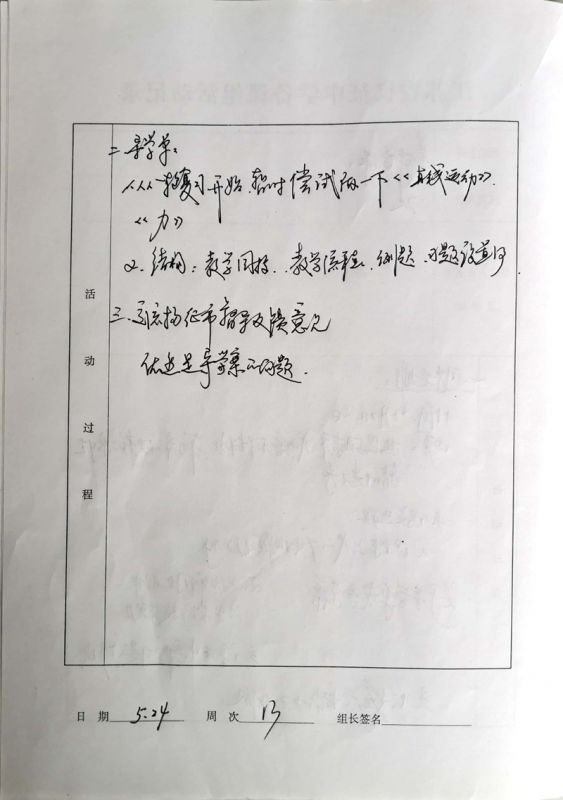 二、导学案:
1、从一轮复习开始,暂时尝试做一下《直线运动》
《力》
2、结构:教学目标、教学流程、例题、习题设置
三、扬征市督导反馈意见
优点是导学案的问题.
活动过程
日 期 5.24 周 次 13 组长签名